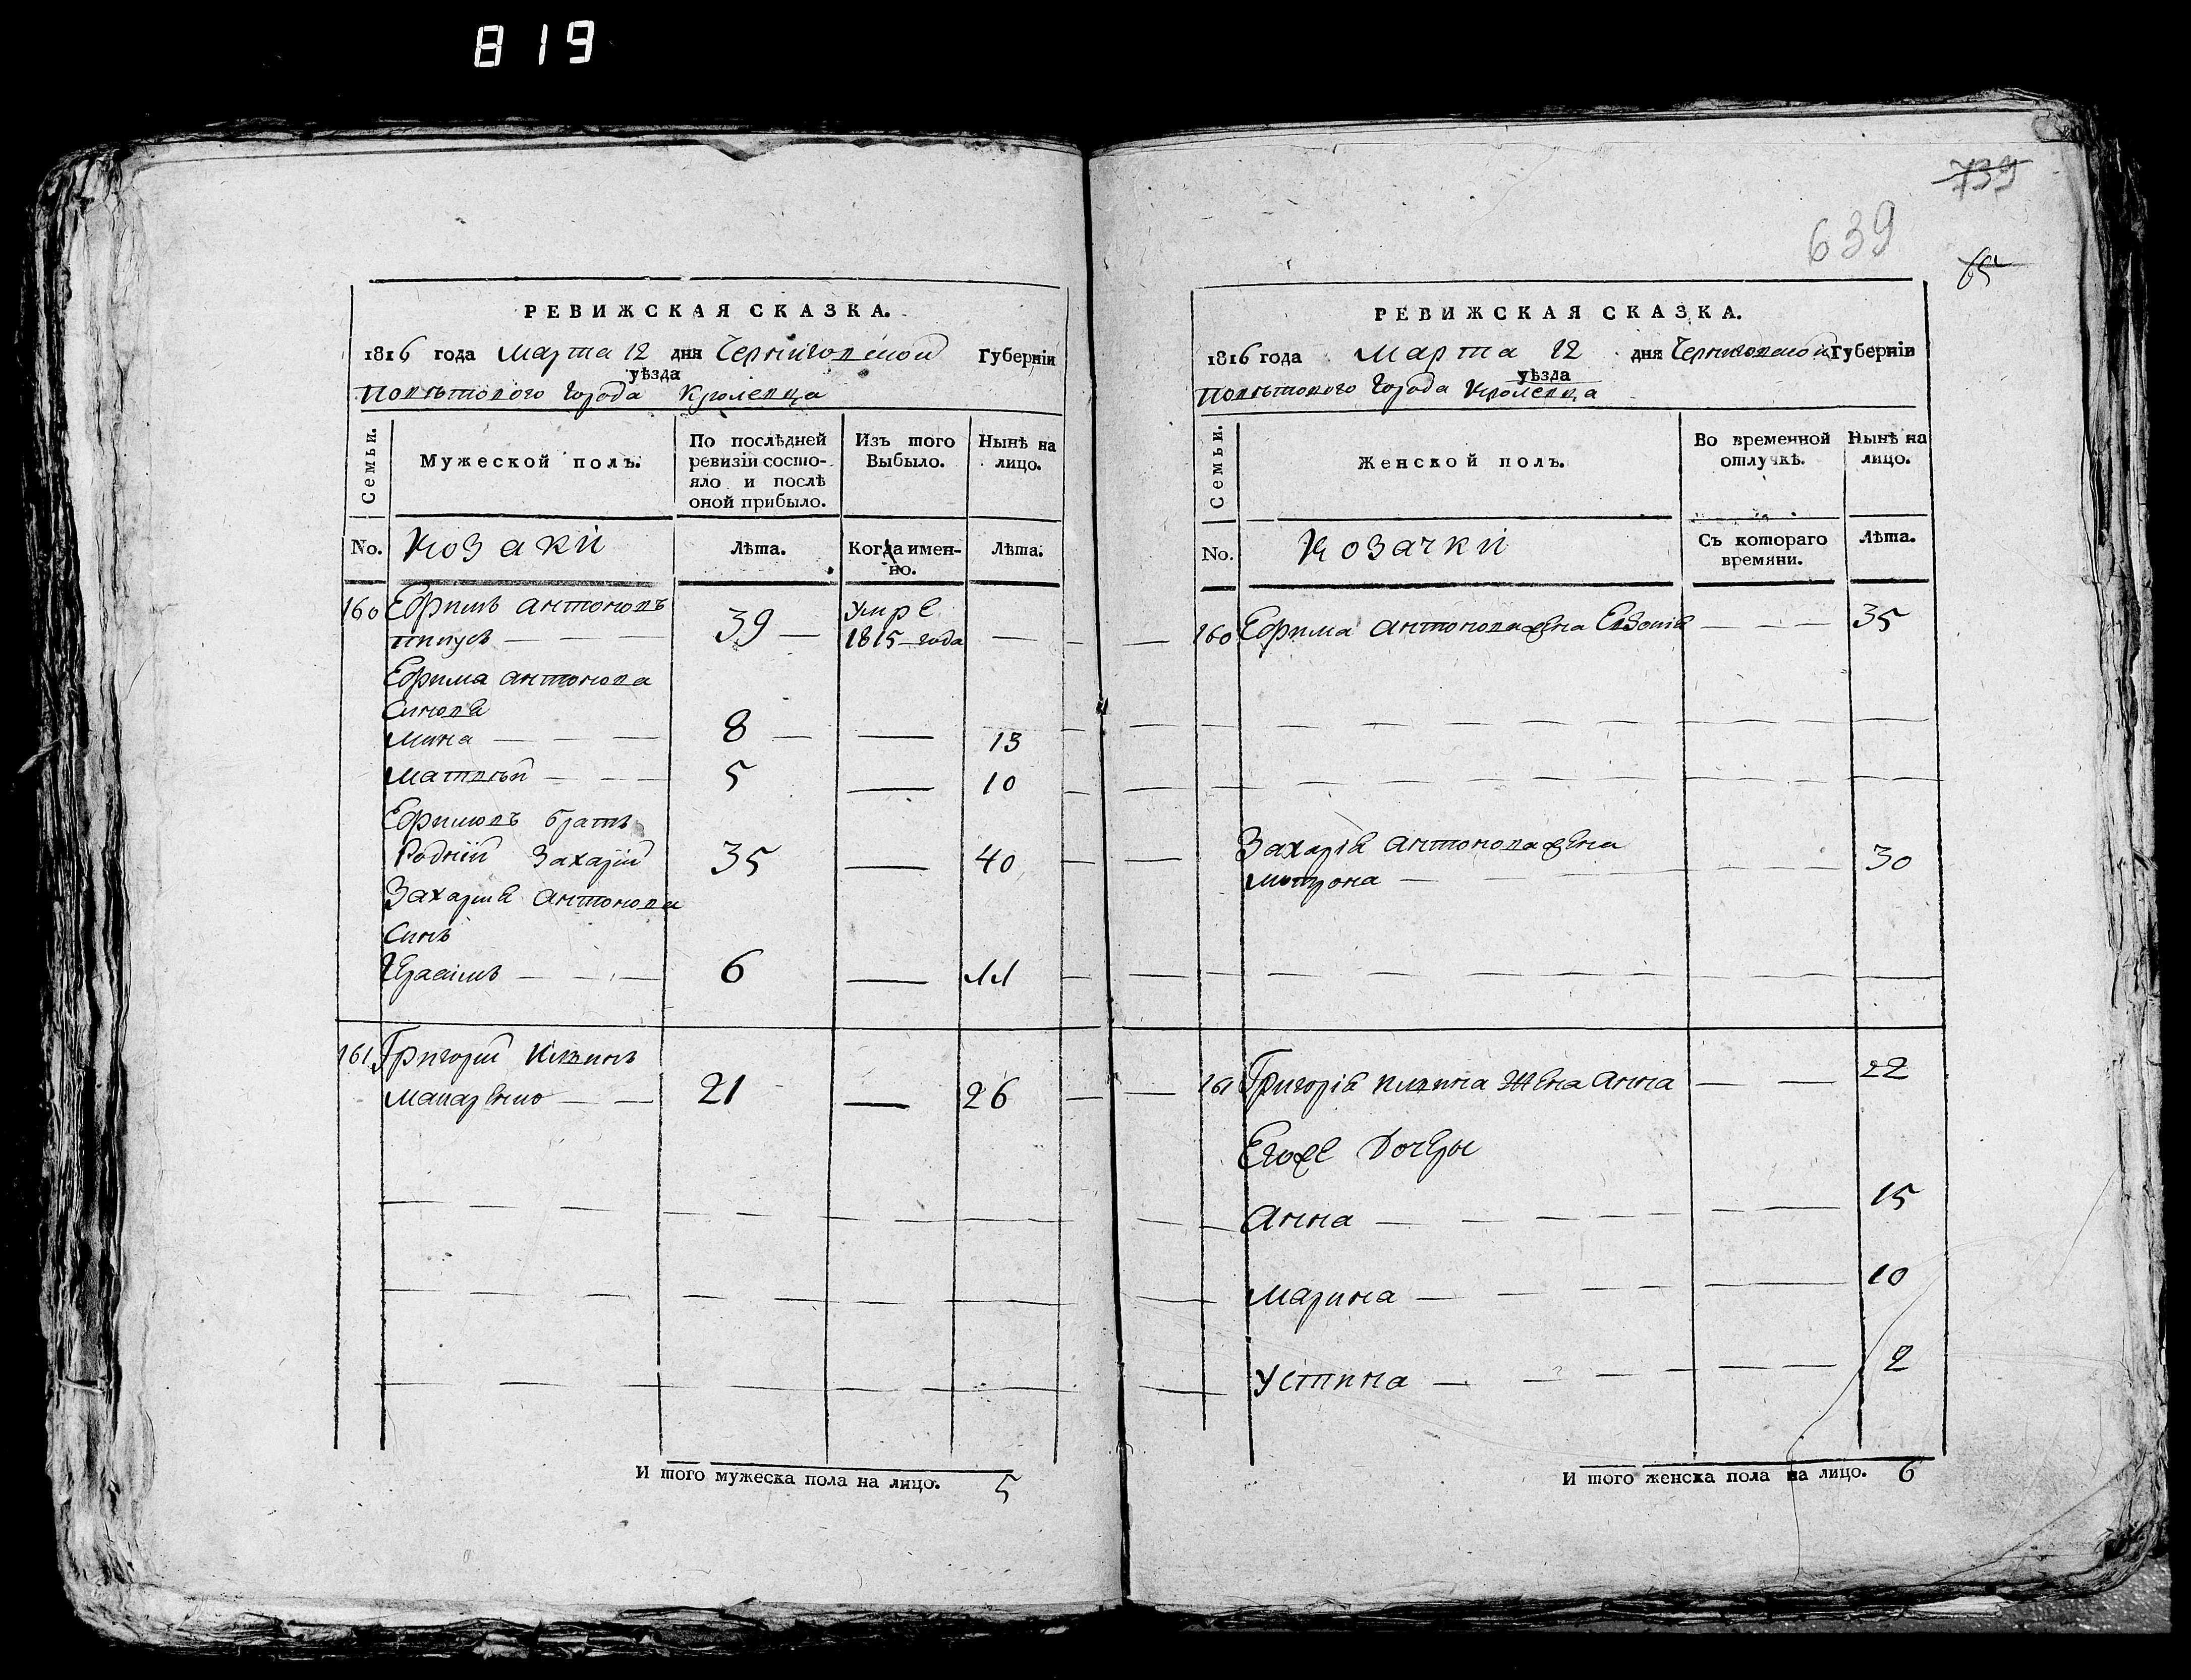 819
РЕВИЖСКАЯ СКАЗКА.
1816 года Марта 12 дня Черниговской Губерніи
уѣзда
Повѣтового города Кролевца
Семьи.
Мужеской полъ.
По послѣдней ревизіи состо-
яло и послѣ оной прибыло.
Изъ того Выбыло.
Нынѣ на лицо.
No.
Козаки
Лѣта.
Когда имен-
но.
Лѣта.
160 Ефимъ Антоновъ
39 — умре
1815 года —
Ефима Антонова
Синове
Мина — — — 8 — — 13
Матвѣй — — — 5 — 10
Ефимовъ братъ
Родній Захарій 35 — 40
Захарія Антонова
Синъ
Герасимъ — — — 6 — 11
161 Григорій
Макаренко — — 21 — 26
И того мужеска пола на лицо. 5
739
639
65
РЕВИЖСКАЯ СКАЗКА.
1816 года Марта 12 дня Черниговской Губерніи
уѣзда
Повѣтового города Кролевца
Семьи.
Женской полъ.
Во временной отлучкѣ.
Нынѣ на лицо.
No.
Козачки
Съ котораго времяни.
Лѣта.
160 Ефима Антонова жена — — — 35
Захарія Антонова жена
Мотрона — — — 30
161 Григорія жена Анна — — 22
Егоже дочеры
Анна — — — 15
Марина — — — 10
Устина — — — 2
И того женска пола на лицо. 6